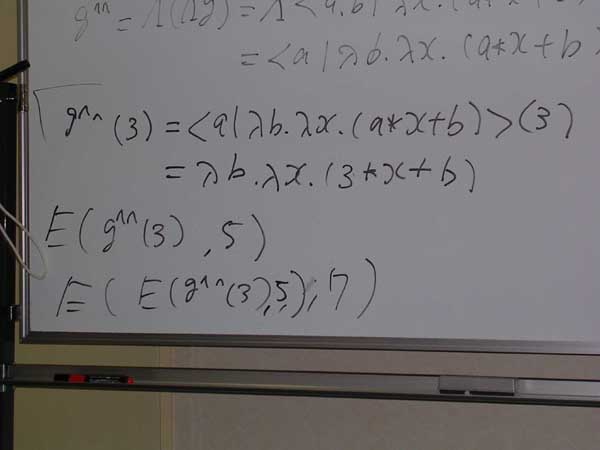 g^^ = Λ(Λg) = Λ<a,b|λx.(a*x+b)>
= <a|λb.λx.(a*x+b)
g^^(3) = <a|λb.λx.(a*x+b)>(3)
= λb.λx.(3*x+b)
E(g^^(3),5)
E(E(g^^(3),5),7)